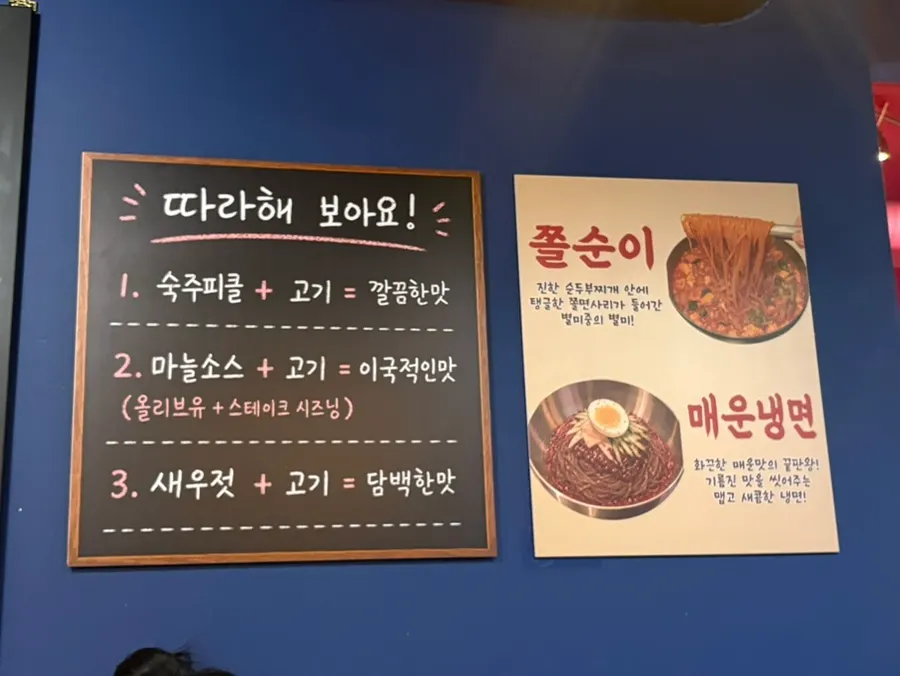 따라해 보아요!
1. 숙주피클 + 고기 = 깔끔한맛
2. 마늘소스 + 고기 = 이국적인맛
(올리브유 + 스테이크 시즈닝)
3. 새우젓 + 고기 = 담백한맛
쫄순이
진한 순두부찌개 안에
탱글한 쫄면사리가 들어간
별미중의 별미!
매운냉면
화끈한 매운맛의 끝판왕!
기름진 맛을 씻어주는
맵고 새콤한 냉면!